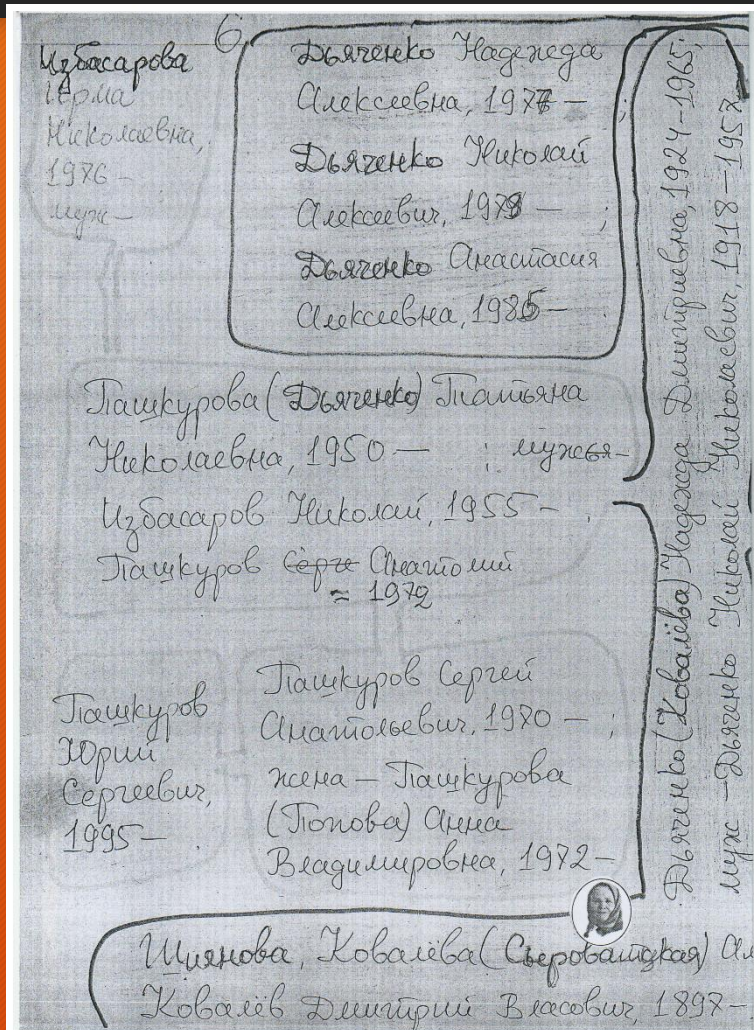 6
Избасарова
Ирма
Николаевна,
1976 –
муж –
Дьяченко Надежда
Алексеевна, 1977 – ;
Дьяченко Николай
Алексеевич, 1979 – ;
Дьяченко Анастасия
Алексеевна, 1985 –
Пашкурова (Дьяченко) Татьяна
Николаевна, 1950 – ; мужья –
Избасаров Николай, 1955 – ;
Пашкуров Серге Анатолий
≈ 1972
Пашкуров
Юрий
Сергеевич,
1995 –
Пашкуров Сергей
Анатольевич, 1970 – ;
жена – Пашкурова
(Попова) Анна
Владимировна, 1972 –
Дьяченко (Ковалёва) Надежда Дмитриевна, 1924 – 1965;
муж – Дьяченко Николай Николаевич, 1918 – 1957
Шиянова, Ковалёва (Сыроватская)
Ковалёв Дмитрий Власович, 1897 –